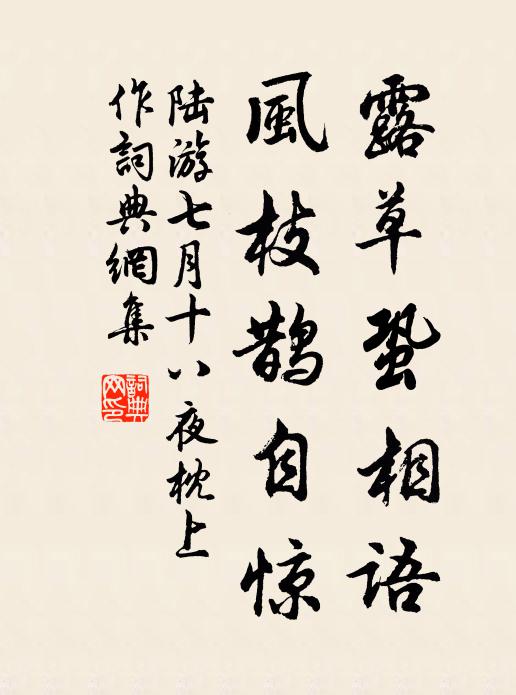 露草蛩相語
風枝鹊自惊
陆游七月十八夜枕上
作詞典網集
詞典
网印